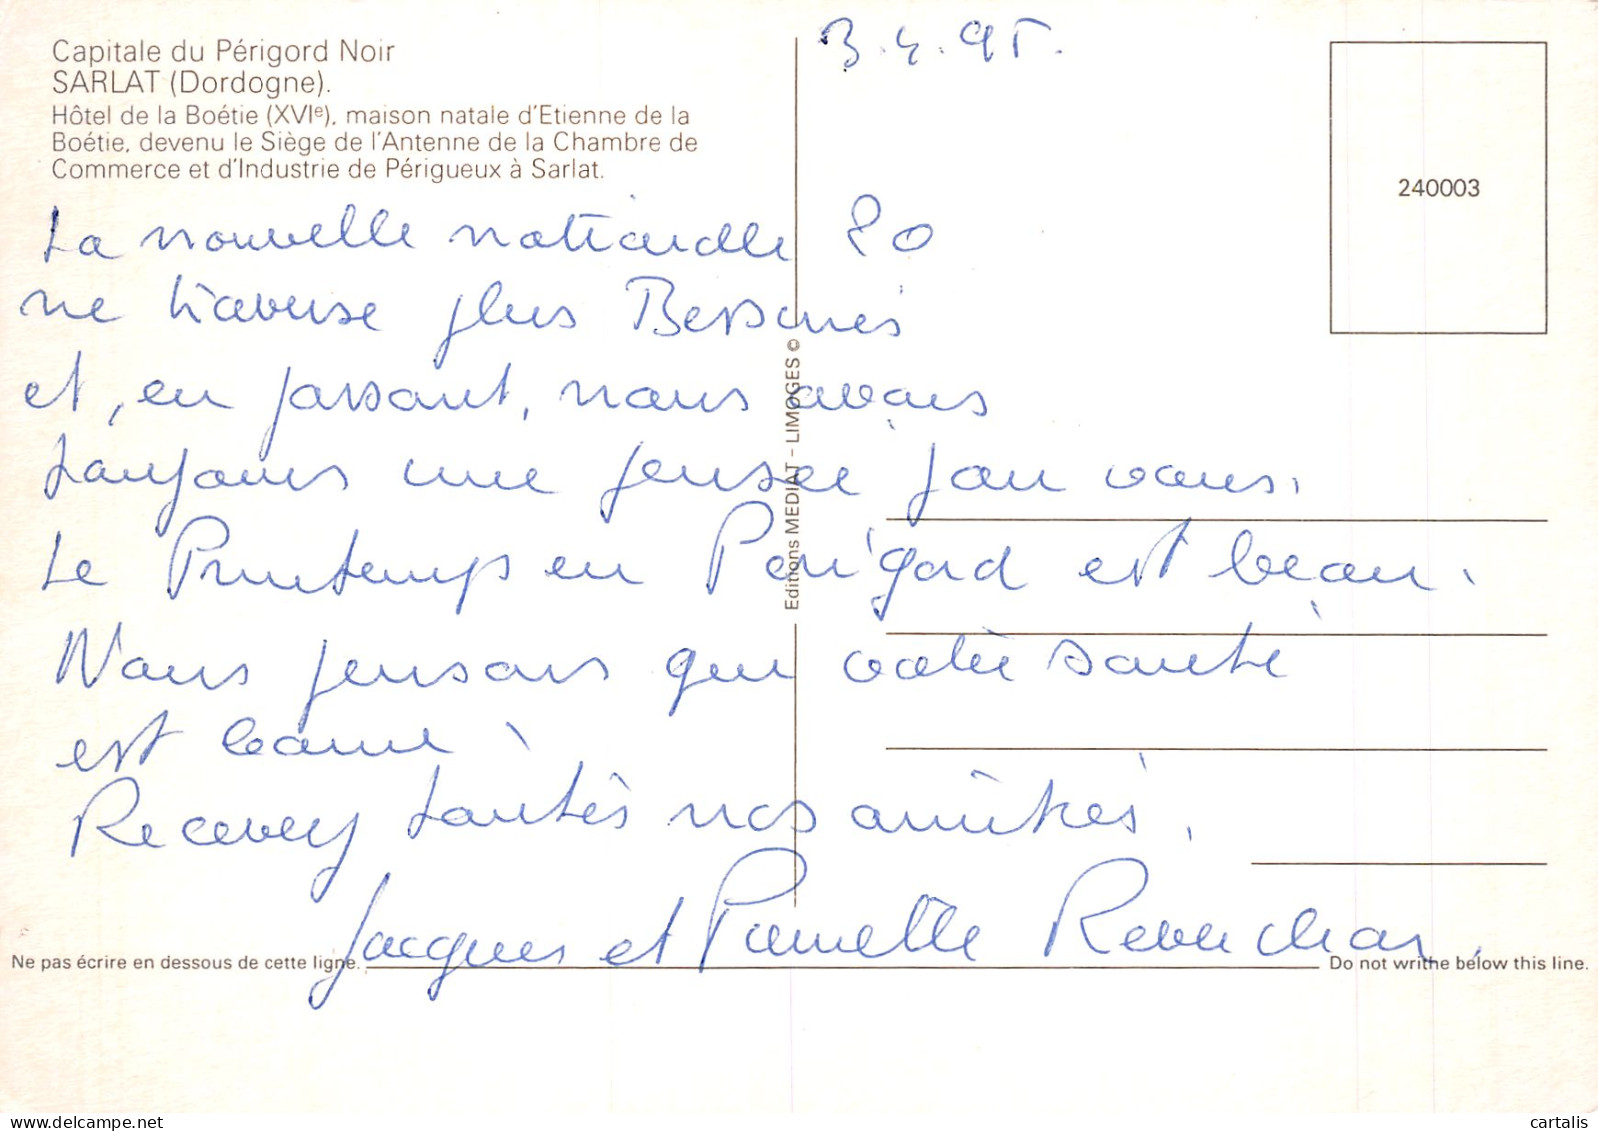 Capitale du Périgord Noir
SARLAT (Dordogne).
Hôtel de la Boétie (XVIe), maison natale d'Etienne de la
Boétie, devenu le Siège de l'Antenne de la Chambre de
Commerce et d'Industrie de Périgueux à Sarlat.
3.4.95.
240003
La nouvelle nationale 20
ne traverse plus Bessines
et, en passant, nous avons
toujours une pensée pour vous.
Le Printemps en Périgord est beau.
Nous pensons que votre santé
est bonne.
Recevez toutes nos amitiés.
Jacques et Pierrette
Editions MEDIAT - LIMOGES ©
Ne pas écrire en dessous de cette ligne.
Do not writhe below this line.
cartalis